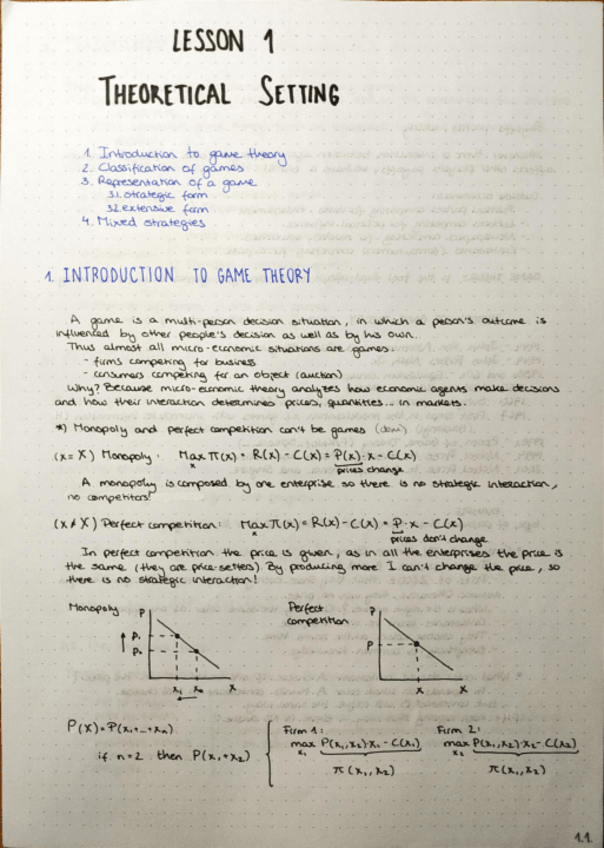 LESSON 1
THEORETICAL SETTING
1. Introduction to game theory
2. Classification of games
3. Representation of a game
3.1. strategic form
3.2 extensive form
4. Mixed strategies
1. INTRODUCTION TO GAME THEORY
A game is a multi-person decision situation, in which a person's outcome is
influenced by other people's decision as well as by his own.
Thus almost all micro-economic situations are games:
- firms competing for business
- consumers competing for an object (auction)
Why? Because micro-economic theory analyzes how economic agents make decisions
and how their interaction determines prices, quantities... in markets.
*) Monopoly and perfect competition can't be games (dem)
(x = X) Monopoly: Max π(x) = R(x) - C(x) = P(x)·x - C(x)
x
prices change
A monopoly is composed by one enterprise so there is no strategic interaction,
no competitors!
(x ≠ X) Perfect competition: Max π(x) = R(x) - C(x) = P·x - C(x)
x
prices don't change
In perfect competition the price is given, as in all the enterprises the price is
the same (they are price-setters). By producing more I can't change the price, so
there is no strategic interaction!
Monopoly P
P₁
P₀
x₁ x₀ x
Perfect competition P
P
x x
P(X) = P(x₁+...+xn)
if n=2 then P(x₁+x₂)
Firm 1:
max P(x₁,x₂)·x₁ - C(x₁)
x₁
π(x₁,x₂)
Firm 2:
max P(x₁,x₂)·x₂ - C(x₂)
x₂
π(x₁,x₂)
1.1.